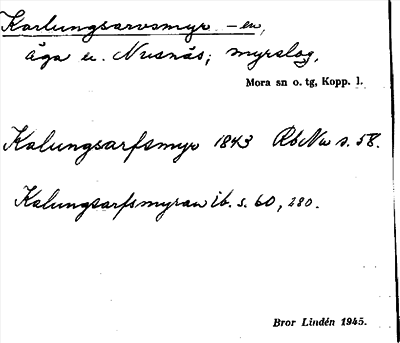 Karlungsarvsmyr -en,
äga u. Nusnäs; myrslog.
Mora sn o. tg, Kopp. l.
Kalungsarfsmyr 1843 RbNu s. 58.
Kalungsarfsmyran ib. s. 60, 280.
Bror Lindén 1945.